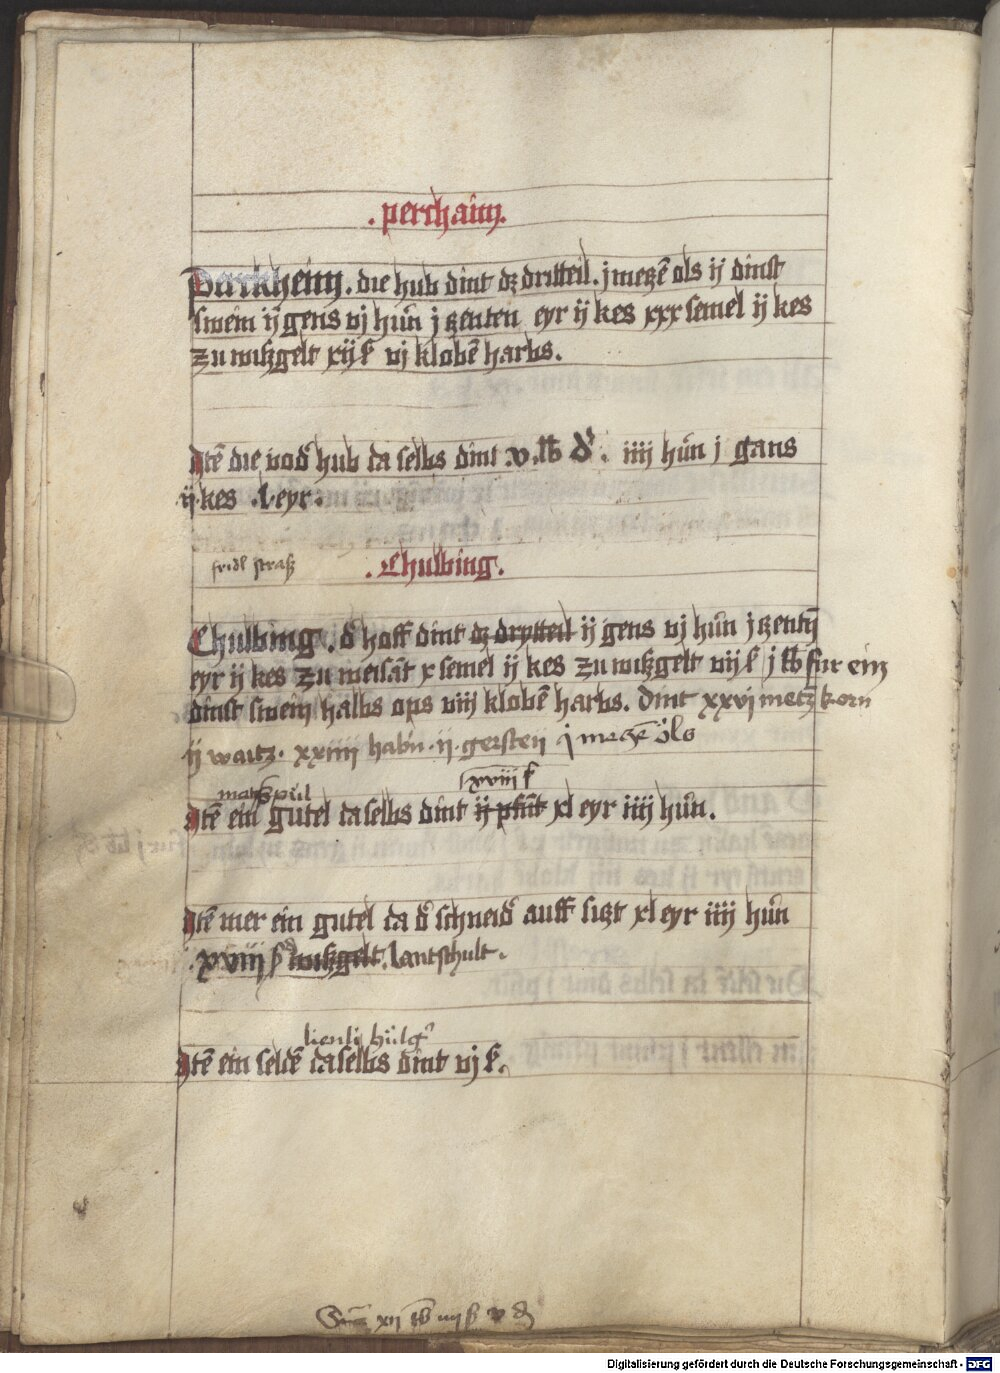 . perchaim.
Perkheim . die hub dint dz dritteil . j mezē ols ij dinst
swein ij gens vj hůn j zenten eyr ij kes xxx semel ij kes
zu wißgelt xij ß vj klobē harbs.
Jtē die vod hub da selbs dint .v. lb d. iiij hůn j gans
ij kes .l. eyr.
fridl straß
. Chulbing.
Chulbing . d hoff dint dz drytteil ij gens vj hůn j zentn
eyr ij kes zu weisāt x semel ij kes zu wißgelt vij ß j lb fur ein
dinst swein halbs ops viij klobē harbs. dint xxvj metz korn
ij waitz . xxiiij habn . ij . gersten j mecze öls
xviij ß
Jtē ein gutel daselbs dint ij pfūt xl eyr iiij hůn.
Jtē mer ein gutel da d schneid auff sizt xl eyr iiij hůn
. xviij ß d wißgelt . lantschult .
lienli hülg
Jtē ein selde daselbs dint vj ß.
Sm̄a xij lb iiij ß v d
Digitalisierung gefördert durch die Deutsche Forschungsgemeinschaft - DFG